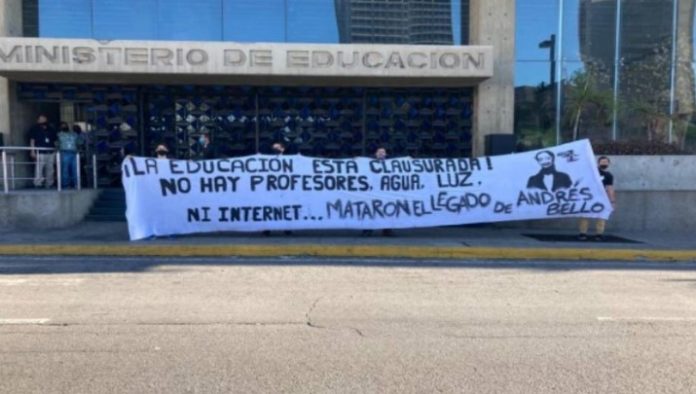 MINISTERIO DE EDUCACION
¡LA EDUCACION ESTÁ CLAUSURADA!
NO HAY PROFESORES, AGUA, LUZ,
NI INTERNET... MATARON EL LEGADO DE ANDRÉS
BELLO